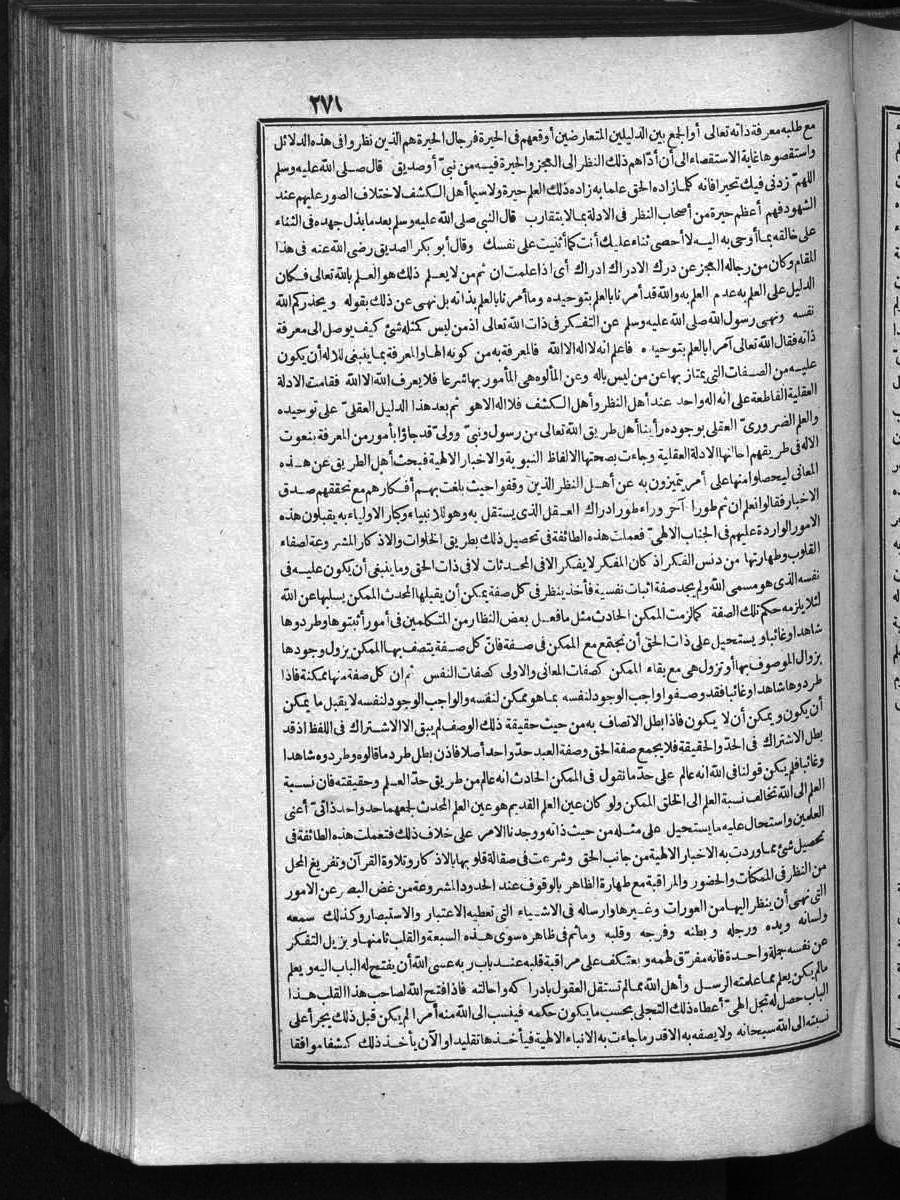 ٢٧١
مع طلبه معرفة ذاته تعالى أو الجمع بين الدليلين المتعارضين أوقعهم فى الحيرة فرجال الحيرة هم الذين نظروا فى هذه الدلائل
واستقصوها غاية الاستقصاء الى أن أدّاهم ذلك النظر الى العجز والحيرة فيه من نبىّ أو صديق قال صلى الله عليه وسلم
اللهمّ زدنى فيك تحيرا فانه كلما زاده الحق علما به زاده ذلك العلم حيرة ولا سيما أهل الكشف لاختلاف الصور عليهم عند
الشهود فهم أعظم حيرة من أصحاب النظر فى الادلة بما لا يتقارب قال النبى صلى الله عليه وسلم بعد ما بذل جهده فى الثناء
على خالقه بما أوحى به اليه لا أحصى ثناء عليك أنت كما أثنيت على نفسك وقال أبو بكر الصديق رضى الله عنه فى هذا
المقام وكان من رجاله العجز عن درك الادراك ادراك أى اذا علمت ان ثم من لا يعلم ذلك هو العلم بالله تعالى فكان
الدليل على العلم به عدم العلم به والله قد أمرنا بالعلم بتوحيده وما أمرنا بالعلم بذاته بل نهى عن ذلك بقوله ويحذركم الله
نفسه ونهى رسول الله صلى الله عليه وسلم عن التفكر فى ذات الله تعالى اذ من ليس كمثله شئ كيف يوصل الى معرفة
ذاته فقال الله تعالى آمرا بالعلم بتوحيده فاعلم انه لا اله الا الله فالمعرفة به من كونه الها والمعرفة بما ينبغى للاله أن يكون
عليه من الصفات التى يمتاز بها عن من ليس باله وعن المألوه هى المأمور بها شرعا فلا يعرف الله الا الله فقامت الادلة
العقلية القاطعة على انه اله واحد عند أهل النظر وأهل الكشف فلا اله الا هو ثم بعد هذا الدليل العقلىّ على توحيده
والعلم الضرورىّ العقلى بوجوده رأينا أهل طريق الله تعالى من رسول ونبىّ وولىّ قد جاؤا بأمور من المعرفة بنعوت
الاله فى طريقهم احالتها الادلة العقلية وجاءت بصحتها الالفاظ النبوية والاخبار الالهية فبحث أهل الطريق عن هذه
المعانى ليحصلوا منها على أمر يتميزون به عن أهل النظر الذين وقفوا حيث بلغت بهم أفكارهم مع تحققهم صدق
الاخبار فقالوا نعلم ان ثم طورا آخر وراء طور ادراك العقل الذى يستقل به وهو للانبياء وكبار الاولياء به يقبلون هذه
الامور الواردة عليهم فى الجناب الالهىّ فعملت هذه الطائفة فى تحصيل ذلك بطريق الخلوات والاذكار المشروعة لصفاء
القلوب وطهارتها من دنس الفكر اذ كان المفكر لا يفكر الا فى المحدثات لا فى ذات الحق وما ينبغى أن يكون عليه فى
نفسه الذى هو مسمى الله ولم يجد صفة اثبات نفسية فأخذ ينظر فى كل صفة يمكن أن يقبلها المحدث الممكن يسلبها عن الله
لئلا يلزمه حكم تلك الصفة كما لزمت الممكن الحادث مثل ما فعل بعض النظار من المتكلمين فى أمور أثبتوها وطردوها
شاهدا وغائبا ويستحيل على ذات الحق أن تجتمع مع الممكن فى صفة فانّ كل صفة يتصف بها الممكن يزول وجودها
بزوال الموصوف بها أو تزول هى مع بقاء الممكن كصفات المعانى والاولى كصفات النفس ثم ان كل صفة منها ممكنة فاذا
طردوها شاهدا وغائبا فقد وصفوا واجب الوجود لنفسه بما هو ممكن لنفسه والواجب الوجود لنفسه لا يقبل ما يمكن
أن يكون ويمكن أن لا يكون فاذا بطل الاتصاف به من حيث حقيقة ذلك الوصف لم يبق الا الاشتراك فى اللفظ اذ قد
بطل الاشتراك فى الحدّ والحقيقة فلا يجمع صفة الحق وصفة العبد حدّ واحد أصلا فاذن بطل طرد ما قالوه وطردوه شاهدا
وغائبا فلم يكن قولنا فى الله انه عالم على حدّ ما نقول فى الممكن الحادث انه عالم من طريق حدّ العلم وحقيقته فان نسبة
العلم الى الله تخالف نسبة العلم الى الخلق الممكن ولو كان عين العلم القديم هو عين العلم المحدث لجمعهما حد واحد ذاتىّ أعنى
العلمين واستحال عليه ما يستحيل على مثله من حيث ذاته ووجدنا الامر على خلاف ذلك فتعملت هذه الطائفة فى
تحصيل شئ مما وردت به الاخبار الالهية من جانب الحق وشرعت فى صقالة قلوبها بالاذكار وتلاوة القرآن وتفريغ المحل
من النظر فى الممكنات والحضور والمراقبة مع طهارة الظاهر بالوقوف عند الحدود المشروعة من غض البصر عن الامور
التى نهى أن ينظر اليها من العورات وغيرها وارساله فى الاشياء التى تعطيه الاعتبار والاستبصار وكذلك سمعه
ولسانه ويده ورجله وبطنه وفرجه وقلبه وماثم فى ظاهره سوى هذه السبعة والقلب ثامنها ويزيل التفكر
عن نفسه جملة واحدة فانه مفرّق لهمه ويعتكف على مراقبة قلبه عند باب ربه عسى الله أن يفتح له الباب اليه ويعلم
مالم يكن يعلم مما علمته الرسل وأهل الله مما لم تستقل العقول بادراكه واحالته فاذا فتح الله لصاحب هذا القلب هذا
الباب حصل له تجل الهىّ أعطاه ذلك التجلى بحسب ما يكون حكمه فينسب الى الله منه أمرا لم يكن قبل ذلك يجرأ على
نسبته الى الله سبحانه ولا يصفه به الا قدر ما جاءت به الانباء الالهية فيأخذها تقليدا والآن يأخذ ذلك كشفا موافقا